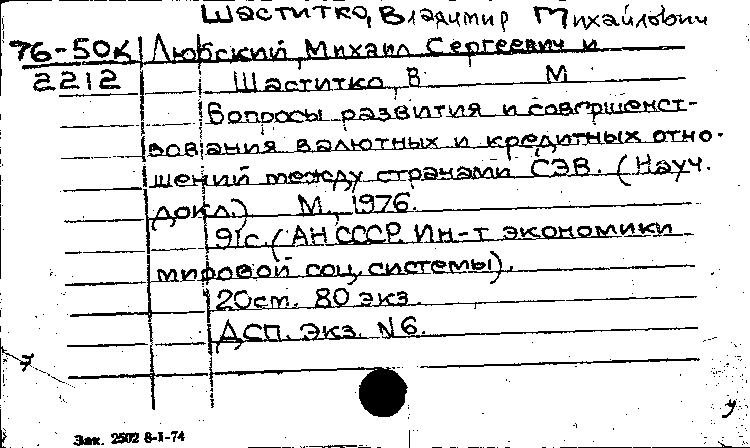 Шаститко, Владимир Михайлович
76-50к Любский, Михаил Сергеевич и
2212 Шаститко, В М
Вопросы развития и совершенст-
вования валютных и кредитных отно-
шений между странами СЭВ. (Науч.
докл.) М., 1976.
91с. (АН СССР. Ин-т экономики
мировой соц. системы).
20см. 80 экз.
ДСП. Экз. №6.
Зак. 2502 8-I-74